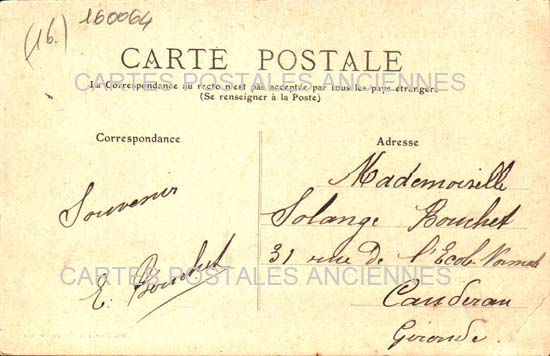 (16.) 160064
CARTE POSTALE
CARTES POSTALES ANCIENNES
La Correspondance au recto n'est pas acceptée par tous les pays étrangers
(Se renseigner à la Poste)
Correspondance
Souvenir
E. Bouchet
Adresse
Mademoiselle
Solange Bouchet
31 rue de l'Ecole Normale
Caudéran
Gironde
CARTES POSTALES ANCIENNES